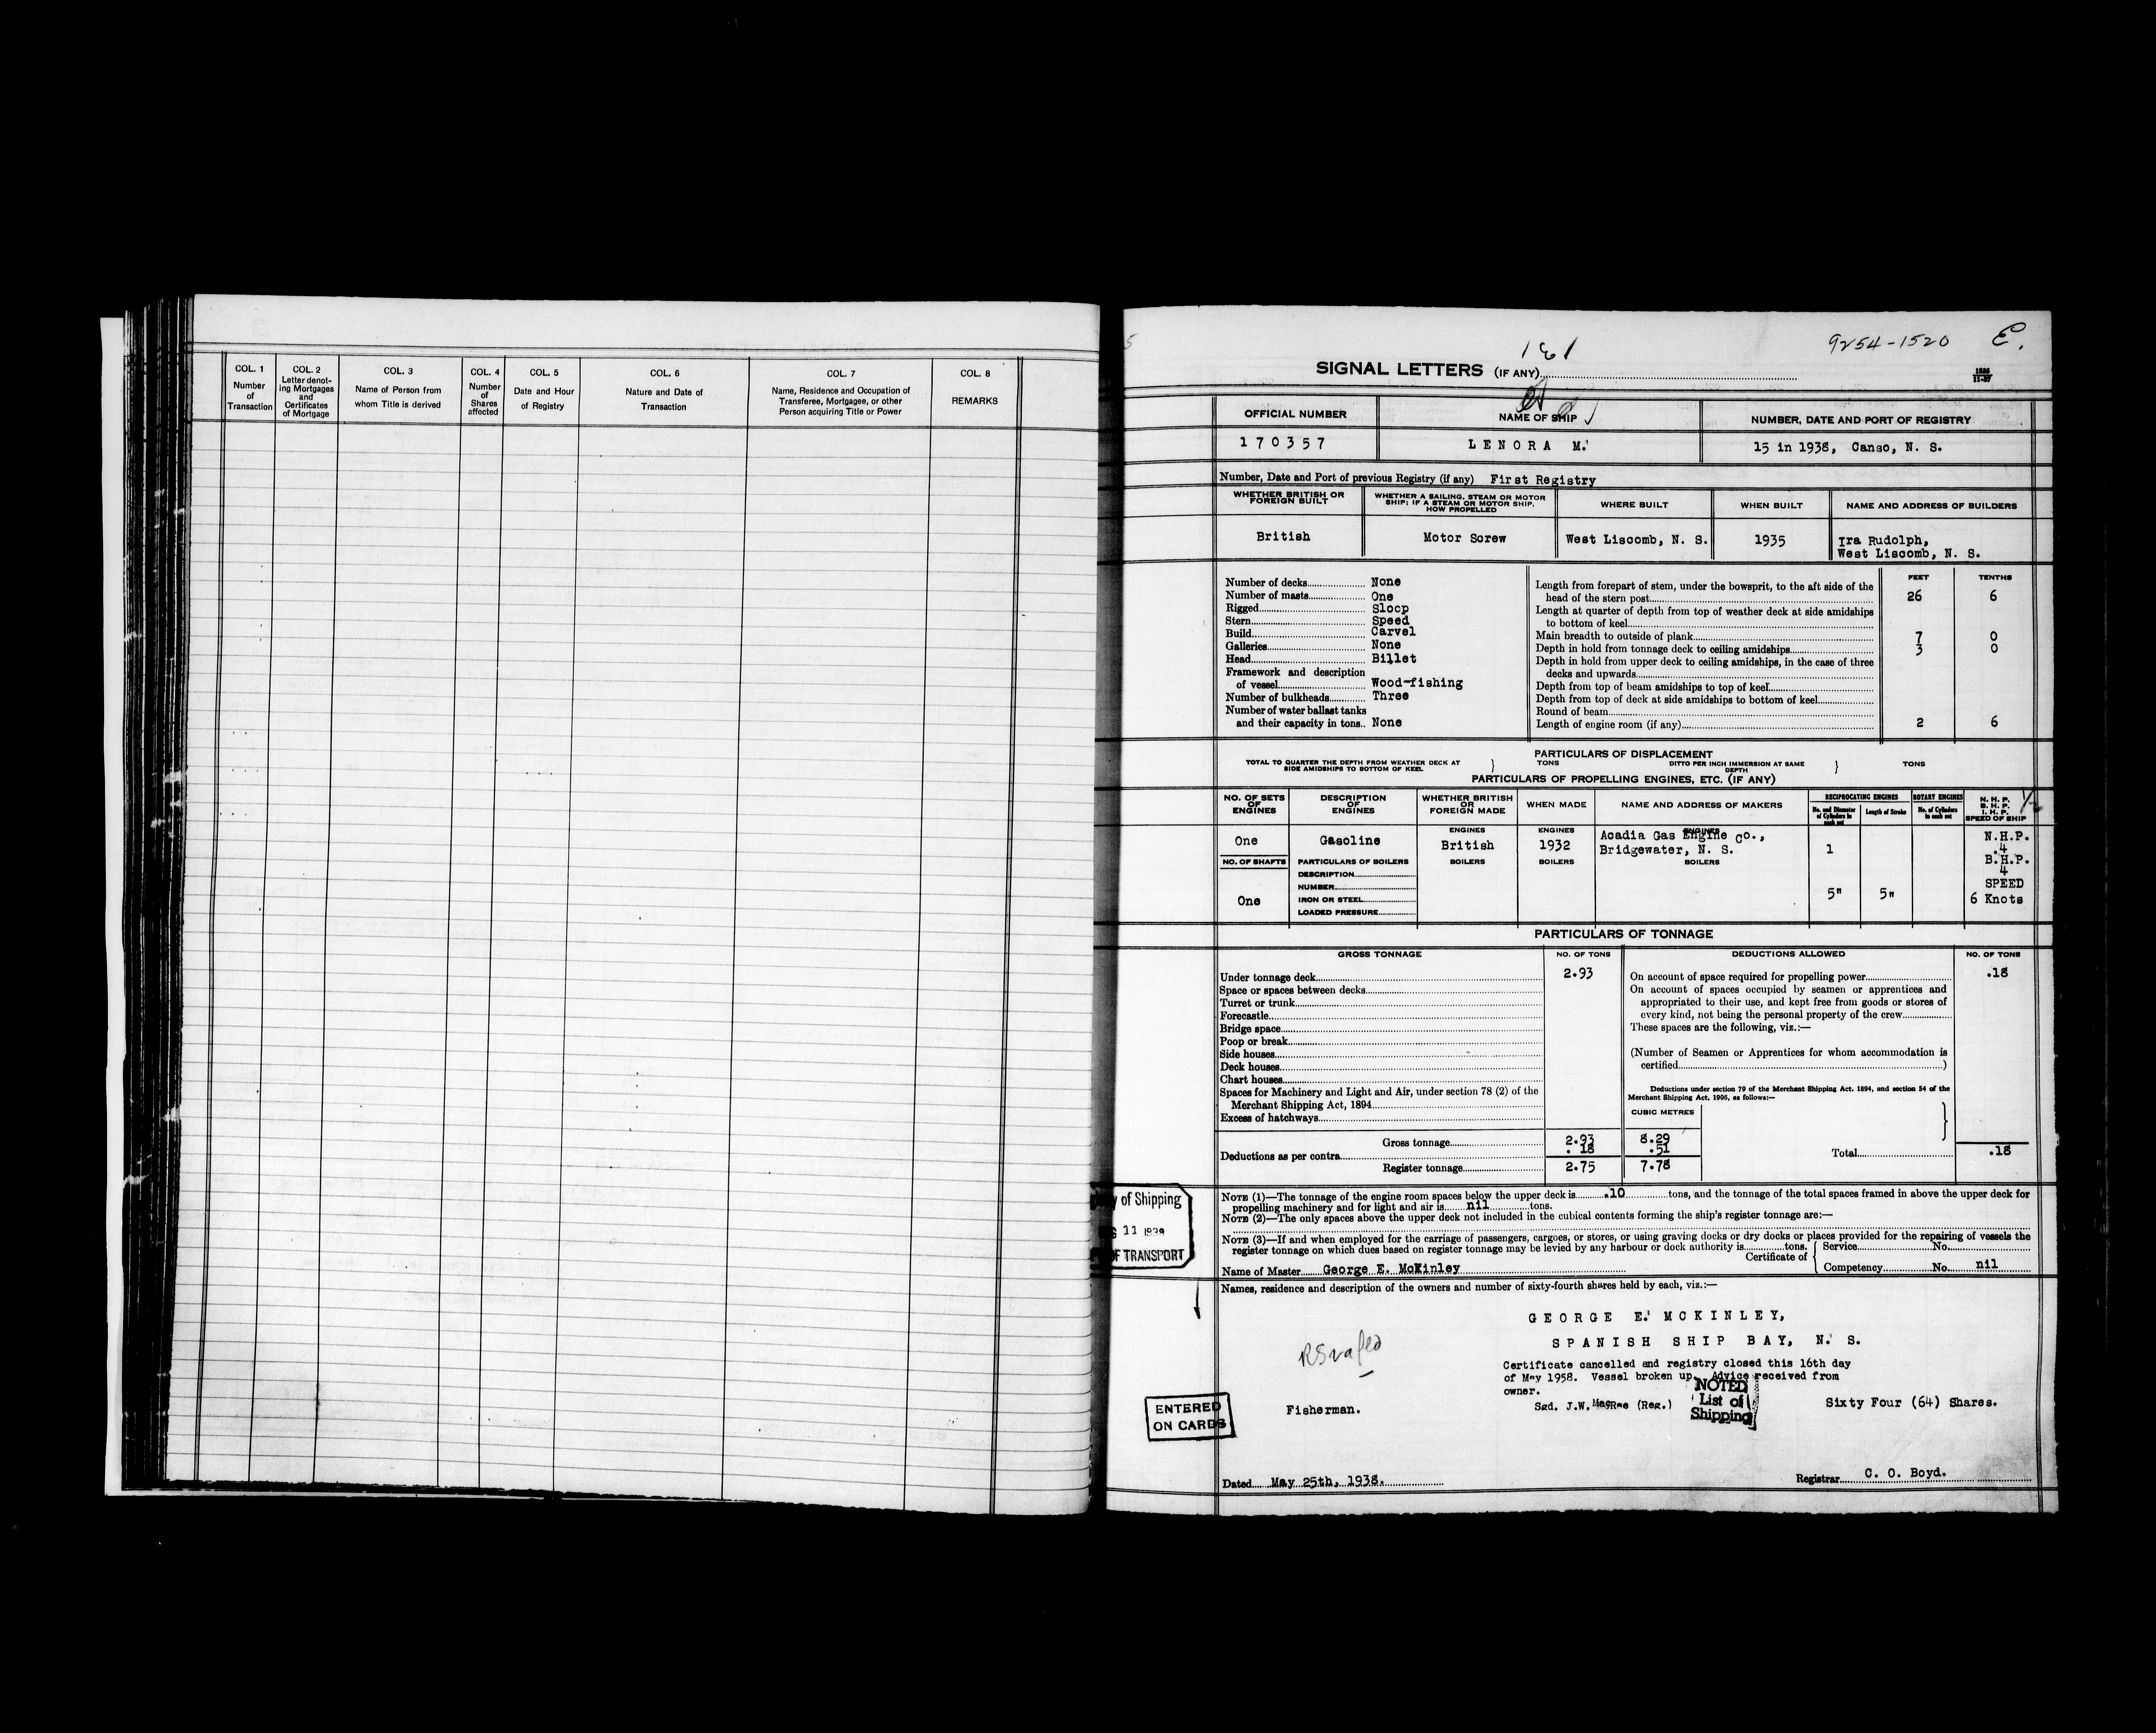 COL. 1
Number
of
Transaction
COL. 2
Letter denot-
ing Mortgages
and
Certificates
of Mortgage
COL. 3
Name of Person from
whom Title is derived
COL. 4
Number
of
Shares
affected
COL. 5
Date and Hour
of Registry
COL. 6
Nature and Date of
Transaction
COL. 7
Name, Residence and Occupation of
Transferee, Mortgagee, or other
Person acquiring Title or Power
COL. 8
REMARKS
9254-1520 E.
SIGNAL LETTERS (IF ANY)
OFFICIAL NUMBER
NAME OF SHIP
NUMBER, DATE AND PORT OF REGISTRY
170357
LENORA M.
15 in 1938, Canso, N. S.
Number, Date and Port of previous Registry (if any) First Registry
WHETHER BRITISH OR
FOREIGN BUILT
WHETHER A SAILING, STEAM OR MOTOR
SHIP; IF A STEAM OR MOTOR SHIP,
HOW PROPELLED
WHERE BUILT
WHEN BUILT
NAME AND ADDRESS OF BUILDERS
British
Motor Screw
West Liscomb, N. S.
1935
Ira Rudolph,
West Liscomb, N. S.
Number of decks None
Number of masts One
Rigged Sloop
Stern Speed
Build Carvel
Galleries None
Head Billet
Framework and description
of vessel Wood-fishing
Number of bulkheads Three
Number of water ballast tanks
and their capacity in tons None
FEET TENTHS
Length from forepart of stem, under the bowsprit, to the aft side of the
head of the stern post 26 6
Length at quarter of depth from top of weather deck at side amidships
to bottom of keel
Main breadth to outside of plank 7 0
Depth in hold from tonnage deck to ceiling amidships 3 0
Depth in hold from upper deck to ceiling amidships, in the case of three
decks and upwards
Depth from top of beam amidships to top of keel
Depth from top of deck at side amidships to bottom of keel
Round of beam
Length of engine room (if any) 2 6
PARTICULARS OF DISPLACEMENT
TOTAL TO QUARTER THE DEPTH FROM WEATHER DECK AT
SIDE AMIDSHIPS TO BOTTOM OF KEEL
TONS
DITTO PER INCH IMMERSION AT SAME
DEPTH
TONS
PARTICULARS OF PROPELLING ENGINES, ETC. (IF ANY)
NO. OF SETS
OF
ENGINES
DESCRIPTION
OF
ENGINES
WHETHER BRITISH
OR
FOREIGN MADE
WHEN MADE
NAME AND ADDRESS OF MAKERS
RECIPROCATING ENGINES
No. and Diameter
of Cylinders in
each set
Length of Stroke
ROTARY ENGINES
No. of Cylinders
in each set
N. H. P.
B. H. P.
I. H. P.
SPEED OF SHIP
One
Gasoline
ENGINES
British
ENGINES
1932
ENGINES
Acadia Gas Engine Co.,
Bridgewater, N. S.
1
N.H.P.
.4
B.H.P.
4
SPEED
6 Knots
NO. OF SHAFTS
One
PARTICULARS OF BOILERS
DESCRIPTION
NUMBER
IRON OR STEEL
LOADED PRESSURE
BOILERS
BOILERS
BOILERS
5"
5"
PARTICULARS OF TONNAGE
GROSS TONNAGE
NO. OF TONS
DEDUCTIONS ALLOWED
NO. OF TONS
Under tonnage deck 2.93
Space or spaces between decks
Turret or trunk
Forecastle
Bridge space
Poop or break
Side houses
Deck houses
Chart houses
Spaces for Machinery and Light and Air, under section 78 (2) of the
Merchant Shipping Act, 1894
Excess of hatchways
On account of space required for propelling power .18
On account of spaces occupied by seamen or apprentices and
appropriated to their use, and kept free from goods or stores of
every kind, not being the personal property of the crew
These spaces are the following, viz.:—
(Number of Seamen or Apprentices for whom accommodation is
certified )
Deductions under section 79 of the Merchant Shipping Act, 1894, and section 54 of the
Merchant Shipping Act, 1906, as follows:—
CUBIC METRES
Gross tonnage 2.93 8.29
Deductions as per contra .18 .51
Register tonnage 2.75 7.78
Total .18
NOTE (1)—The tonnage of the engine room spaces below the upper deck is .10 tons, and the tonnage of the total spaces framed in above the upper deck for
propelling machinery and for light and air is nil tons.
NOTE (2)—The only spaces above the upper deck not included in the cubical contents forming the ship's register tonnage are:—
NOTE (3)—If and when employed for the carriage of passengers, cargoes, or stores, or using graving docks or dry docks or places provided for the repairing of vessels the
register tonnage on which dues based on register tonnage may be levied by any harbour or dock authority is tons.
Name of Master George E. McKinley
Certificate of
Service No.
Competency No. nil
of Shipping
11 1939
OF TRANSPORT
Names, residence and description of the owners and number of sixty-fourth shares held by each, viz.:—
GEORGE E. MCKINLEY,
SPANISH SHIP BAY, N. S.
Certificate cancelled and registry closed this 16th day
of May 1958. Vessel broken up. Advice received from
owner.
Sgd. J.W. MacRae (Reg.)
NOTED
List of
Shipping
Fisherman.
Sixty Four (64) Shares.
ENTERED
ON CARDS
Dated May 25th, 1938.
Registrar C. O. Boyd.